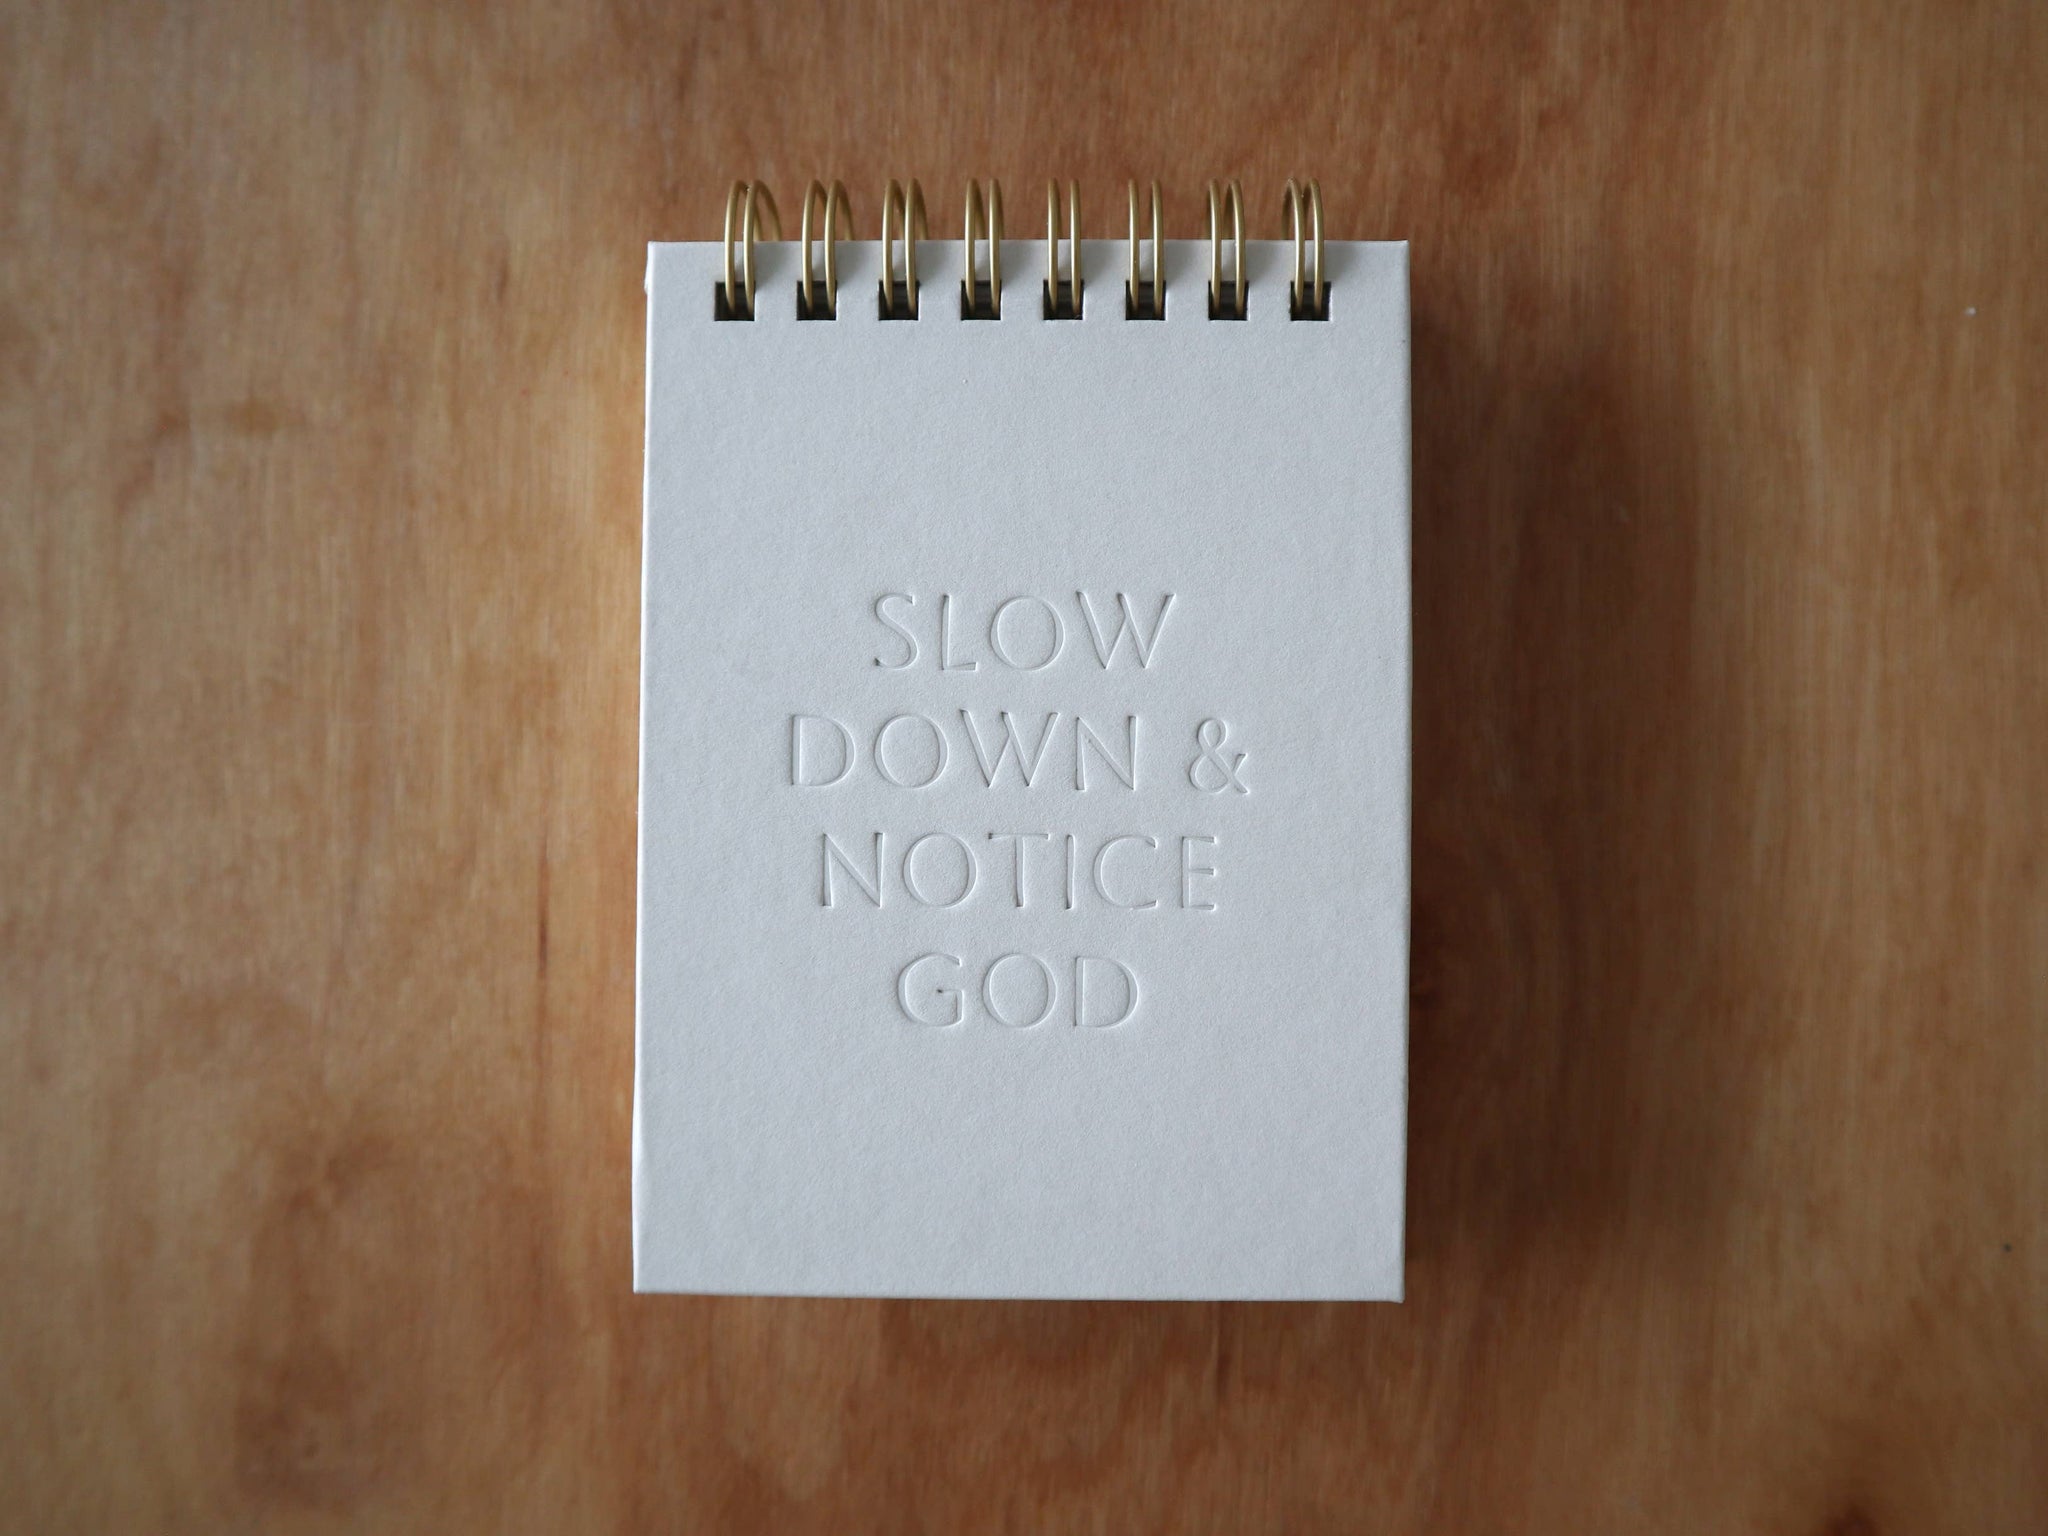 SLOW
DOWN &
NOTICE
GOD